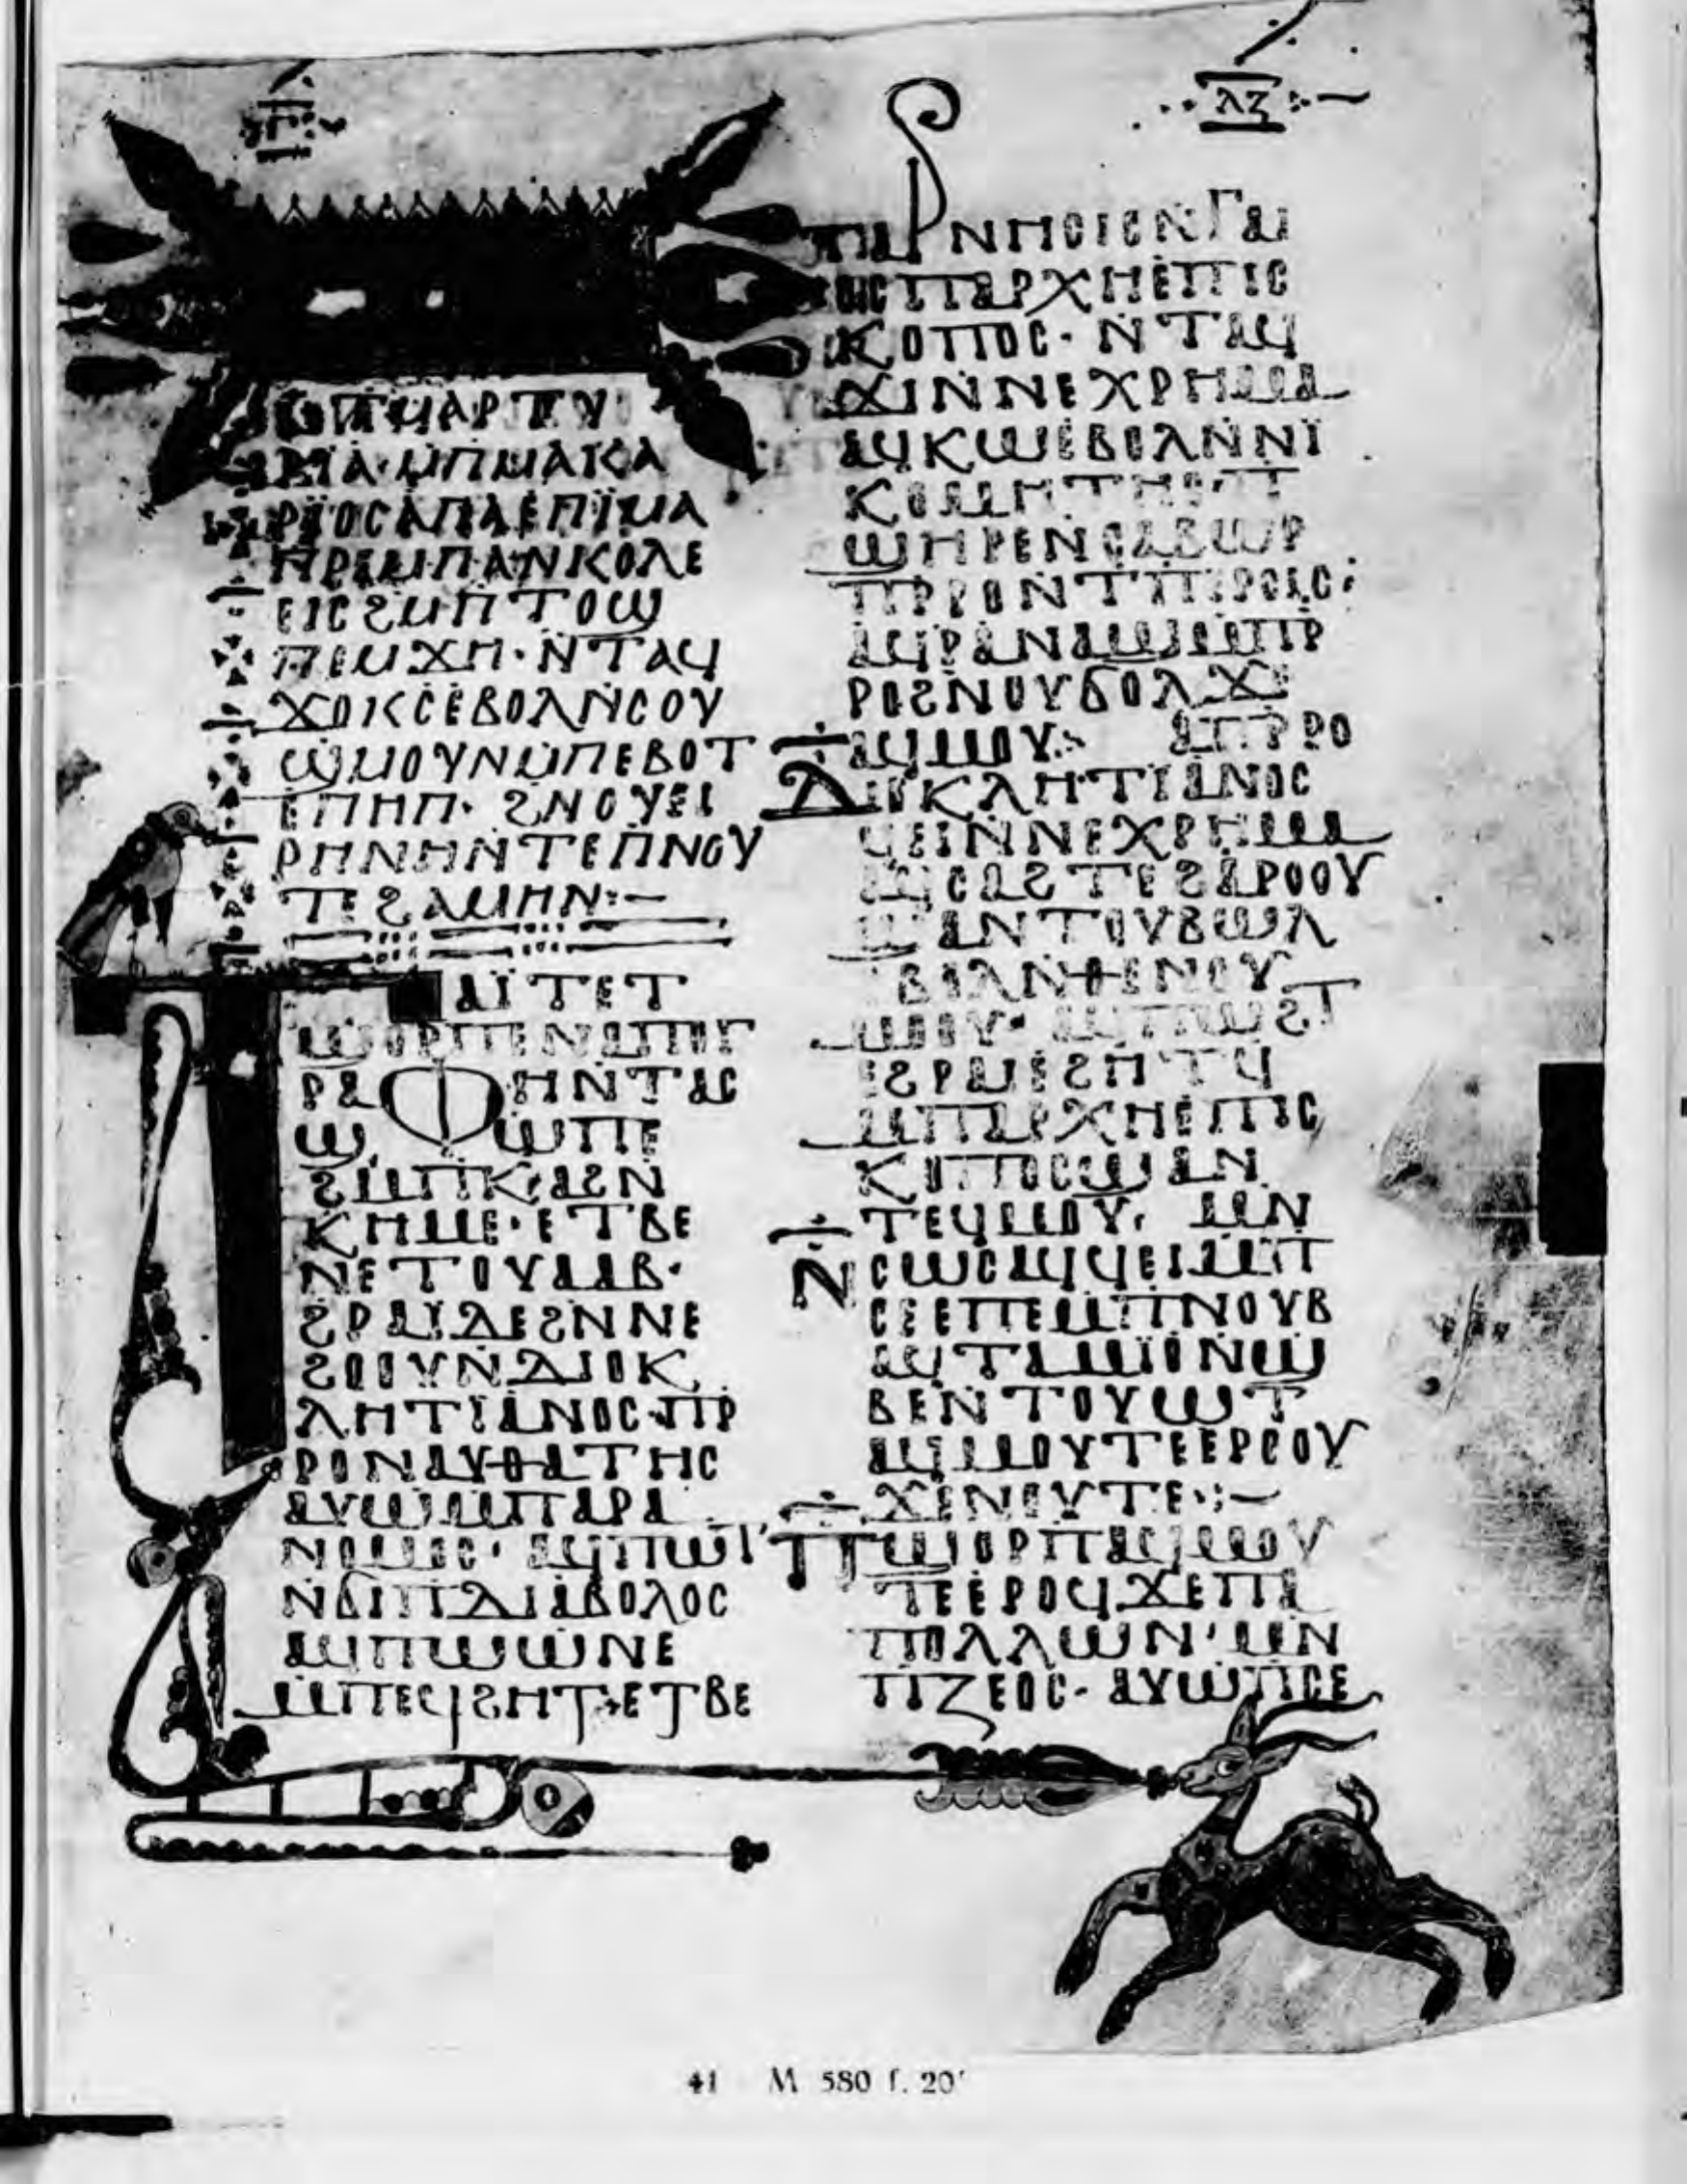 ⲗⲍ
ⲧⲙⲁⲣⲧⲩ
ⲣⲓⲁ·ⲙⲡⲙⲁⲕⲁ
ⲣⲓⲟⲥⲁⲡⲁⲉⲡⲓⲙⲁ
ⲡⲣⲙⲡⲁⲛⲕⲟⲗⲉ
ⲉⲓⲥϩⲙⲡⲧⲟϣ
ⲡⲉⲙϫⲏ·ⲛⲧⲁϥ
ϫⲟⲕⲥⲉⲃⲟⲗⲛⲥⲟⲩ
ϣⲙⲟⲩⲛⲙⲡⲉⲃⲟⲧ
ⲉⲡⲏⲡ·ϩⲛⲟⲩⲉⲓ
ⲣⲏⲛⲏⲛⲧⲉⲡⲛⲟⲩ
ⲧⲉϩⲁⲙⲏⲛ:—
ⲧⲁⲓⲧⲉⲧ
ϣⲟⲣⲡⲉⲛⲁⲡⲟⲅ
ⲣⲁⲫⲏⲛⲧⲁⲥ
ϣⲱⲡⲉ
ϩⲙⲡⲕⲁϩⲛ
ⲕⲏⲙⲉ·ⲉⲧⲃⲉ
ⲛⲉⲧⲟⲩⲁⲁⲃ·
ϩⲣⲁⲓⲇⲉϩⲛⲛⲉ
ϩⲟⲟⲩⲛⲇⲓⲟⲕ
ⲗⲏⲧⲓⲁⲛⲟⲥ·ⲡⲣ
ⲣⲟⲛⲁⲩⲑⲁⲧⲏⲥ
ⲁⲩⲱⲙⲡⲁⲣⲁ
ⲛⲟⲙⲟⲥ·ⲁϥⲡⲱⲧ
ⲛϭⲓⲡⲇⲓⲁⲃⲟⲗⲟⲥ
ⲁϥⲡⲱⲱⲛⲉ
ⲙⲡⲉϥϩⲏⲧ·ⲉⲧⲃⲉ
ⲡⲁⲣⲛⲏⲥⲓⲥⲛⲅⲁⲓ
ⲟⲥⲡⲁⲣⲭⲏⲉⲡⲓⲥ
ⲕⲟⲡⲟⲥ·ⲛⲧⲁϥ
ϫⲓⲛⲛⲉⲭⲣⲏⲙⲁ
ⲁϥⲕⲱⲉⲃⲟⲗⲛⲛⲓ
ⲕⲟⲙⲏⲧⲏⲥⲡ
ϣⲏⲣⲉⲛⲥⲁⲃⲱⲣ
ⲡⲣⲣⲟⲛⲧⲡⲉⲣⲥⲓⲥ·
ⲁϥⲣⲁⲛⲁϣⲙⲡⲣ
ⲣⲟϩⲛⲟⲩϭⲟⲗϫⲉ
ⲁϥⲙⲟⲩ: ⲁⲡⲣⲣⲟ
ⲇⲓⲟⲕⲗⲏⲧⲓⲁⲛⲟⲥ
ϥⲉⲓⲛⲛⲉⲭⲣⲏⲙⲁ
ⲁϥⲥⲁϩⲧⲉϩⲁⲣⲟⲟⲩ
ϣⲁⲛⲧⲟⲩⲃⲱⲗ
ⲉⲃⲟⲗⲛⲑⲉⲛⲟⲩ
ⲙⲟⲟⲩ·ⲁϥⲡⲱϩⲧ
ⲉϩⲣⲁⲓⲉϩⲏⲧϥ
ⲙⲡⲁⲣⲭⲏⲉⲡⲓⲥ
ⲕⲟⲡⲟⲥϣⲁⲛ
ⲧⲉϥⲙⲟⲩ· ⲙⲛ
ⲛⲥⲱⲥⲁϥϥⲉⲓⲙⲡ
ⲥⲉⲉⲡⲉⲙⲡⲛⲟⲩⲃ
ⲁϥⲧⲁⲙⲓⲟⲛϣ
ⲃⲉⲛⲧⲟⲩⲱⲧ
ⲁϥⲙⲟⲩⲧⲉⲉⲣⲟⲟⲩ
ϫⲉⲛⲟⲩⲧⲉ:—
ⲡϣⲟⲣⲡⲁϥⲙⲟⲩ
ⲧⲉⲉⲣⲟϥϫⲉⲡⲁ
ⲡⲟⲗⲗⲱⲛ·ⲙⲛ
ⲡⲍⲉⲟⲥ·ⲁⲩⲱⲡⲥⲉ
41 M 580 f. 20ʳ